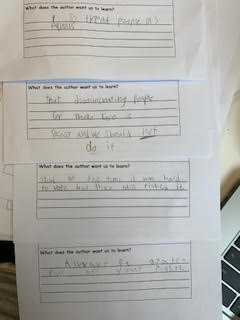 What does the author want us to learn?
to treat people as
equals
What does the author want us to learn?
that discriminating people
for there race is
racist and we should not
do it
What does the author want us to learn?
that at the time it was hard
to vote but they still risked
What does the author want us to learn?
Always be grate-
ful of your rights